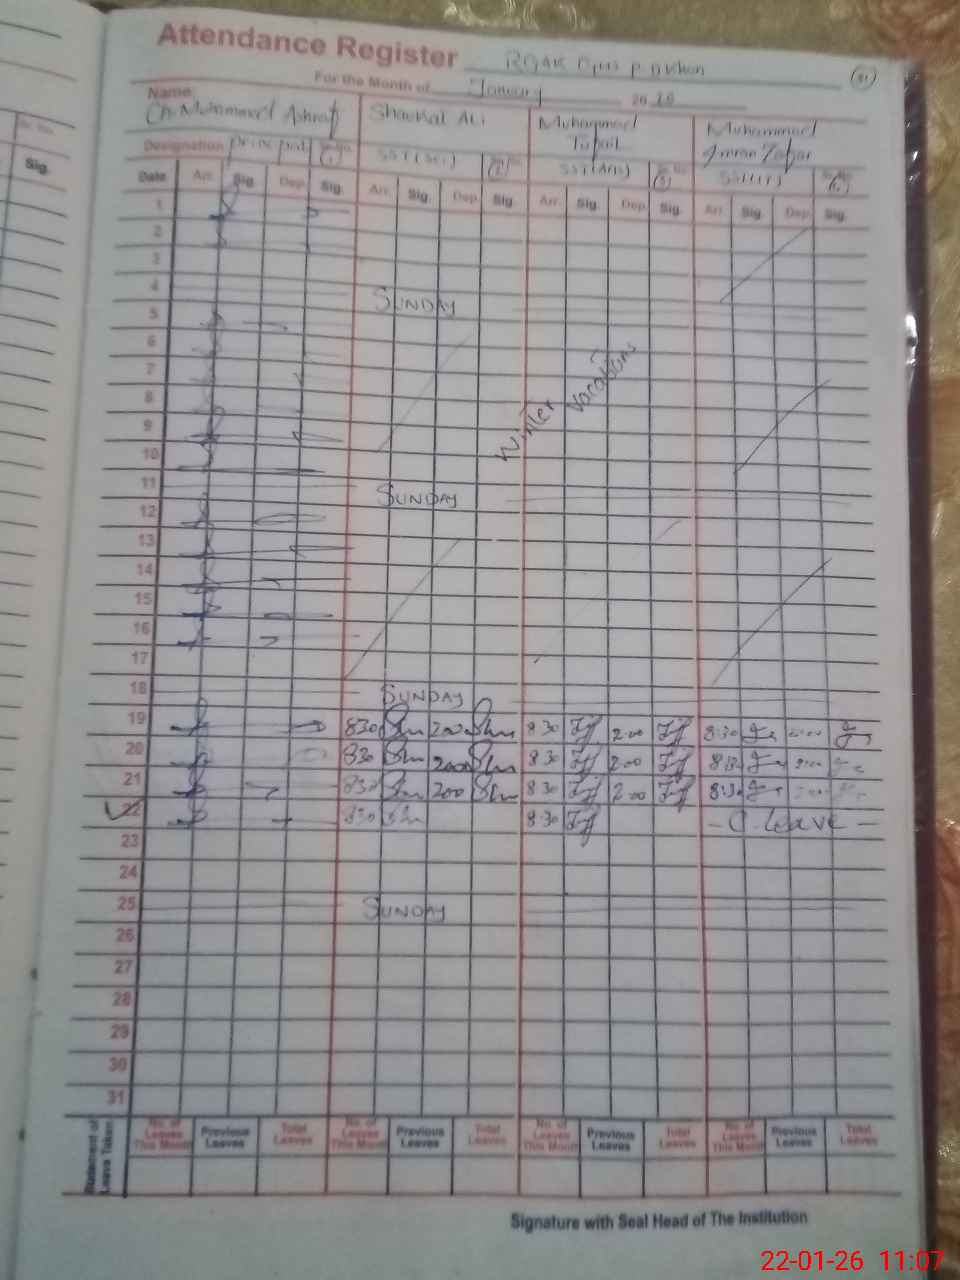 Attendance Register
For the Month of January 2026
Name: Ch. Muhammad Ashraf Shaukat Ali Muhammad Tufail Muhammad Imran Zafar
Designation Principal (1) SST(Sci) (2) SST(Arts) (3)
Date Arr. Sig. Dep. Sig. Arr. Sig. Dep. Sig. Arr. Sig. Dep. Sig. Arr. Sig. Dep. Sig.
1
2
3
4 SUNDAY
5
6
7
8
9 Winter Vacations
10
11 SUNDAY
12
13
14
15
16
17
18 SUNDAY
19 830 200 8:30 2:00 8:30
20 830 200 8:30 2:00 8:30
21 830 200 8:30 2:00 8:30
22 830 8:30 - C. Leave -
23
24
25 SUNDAY
26
27
28
29
30
31
Statement of Leave Taken No. of Leaves This Month Previous Leaves Total Leaves No. of Leaves This Month Previous Leaves Total Leaves No. of Leaves This Month Previous Leaves Total Leaves No. of Leaves This Month Previous Leaves Total Leaves
Signature with Seal Head of The Institution
22-01-26 11:07